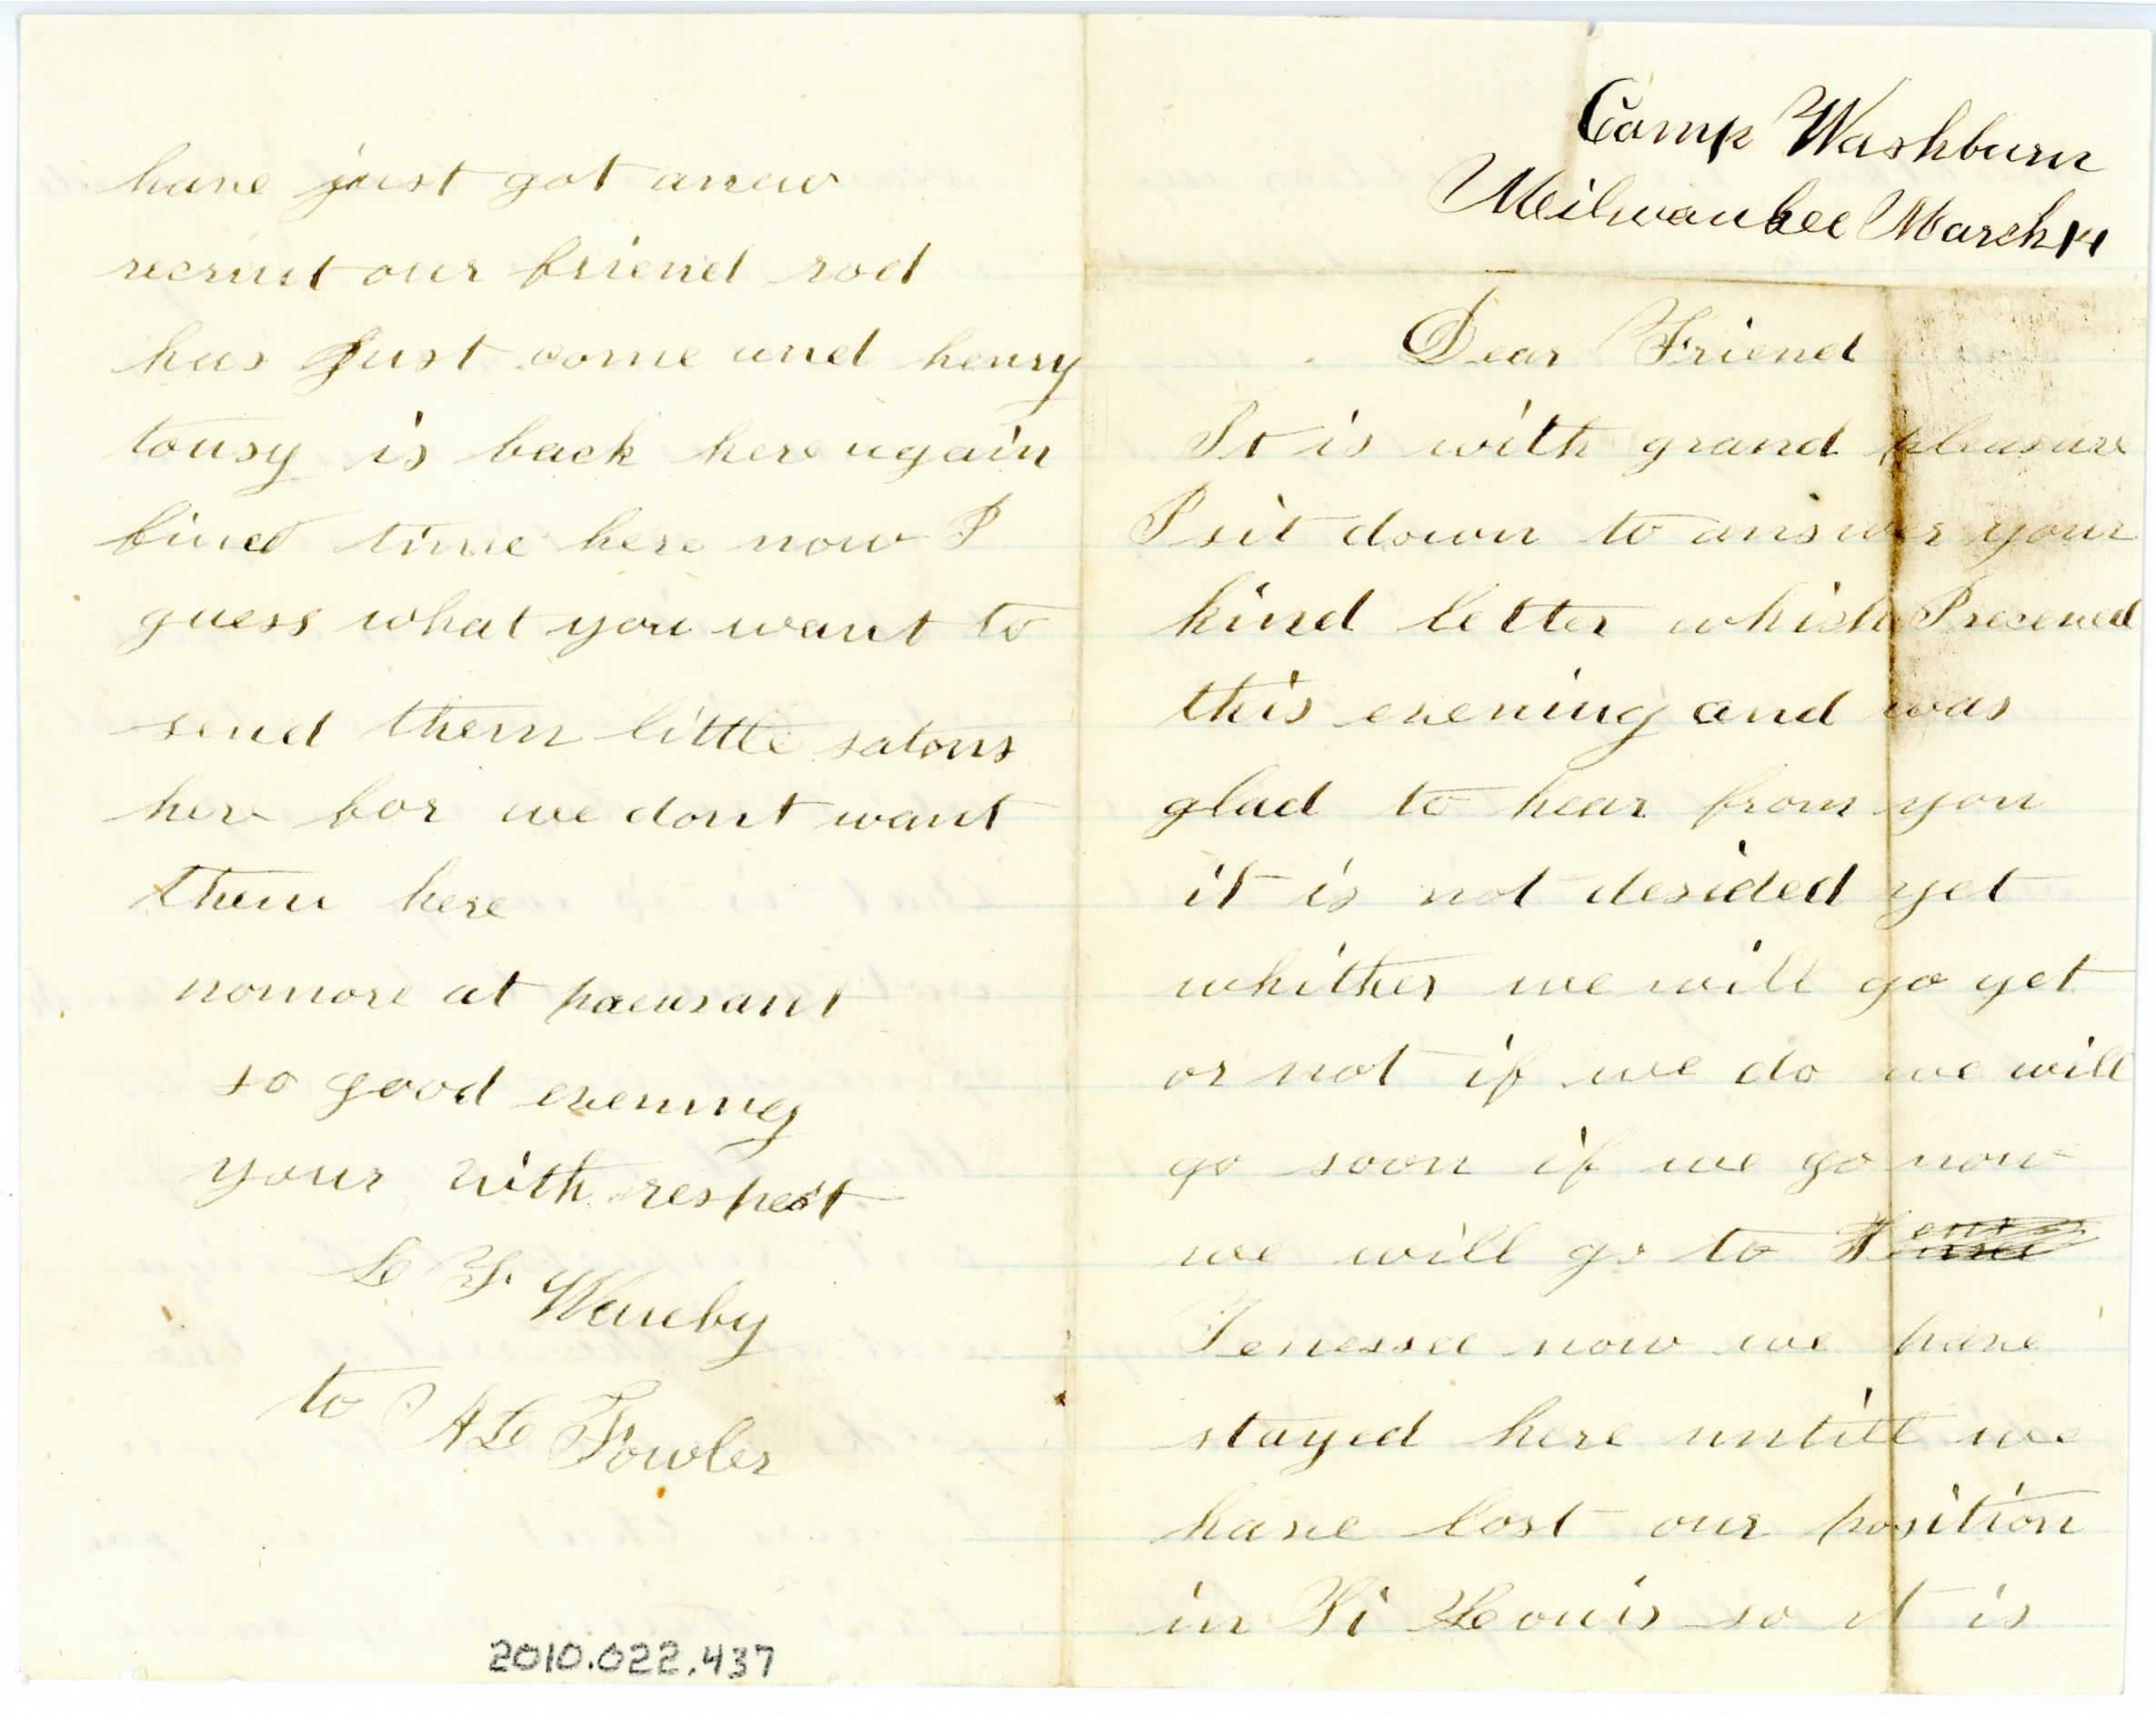 Camp Washburn
Meilwaukee March 14
Dear Friend
It is with grand pleasure
I sit down to answer your
kind letter which I receved
this evening and was
glad to hear from you
it is not desided yet
whither we will go yet
or not if we do we will
go soon if we go now
we will go to
Tenessee now we have
stayed here untill we
have lost our position
in St Louis so it is
have just got anew
recruit our friend rod
has Just come and henry
tousy is back here again
fined time here now I
guess what you want to
send them little satons
here for we dont want
them here
nomore at
so good evening
your with respect
L F
to A L Fowler
2010.022.437